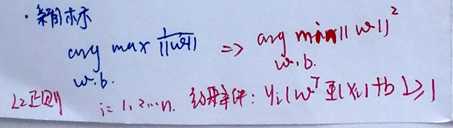 · 新目标
arg max 1/||w|| => arg min ||w||²
w.b. w.b.
L2正则 i=1,2...n. 约束条件: yᵢ(wᵀΦ(xᵢ)+b)≥1